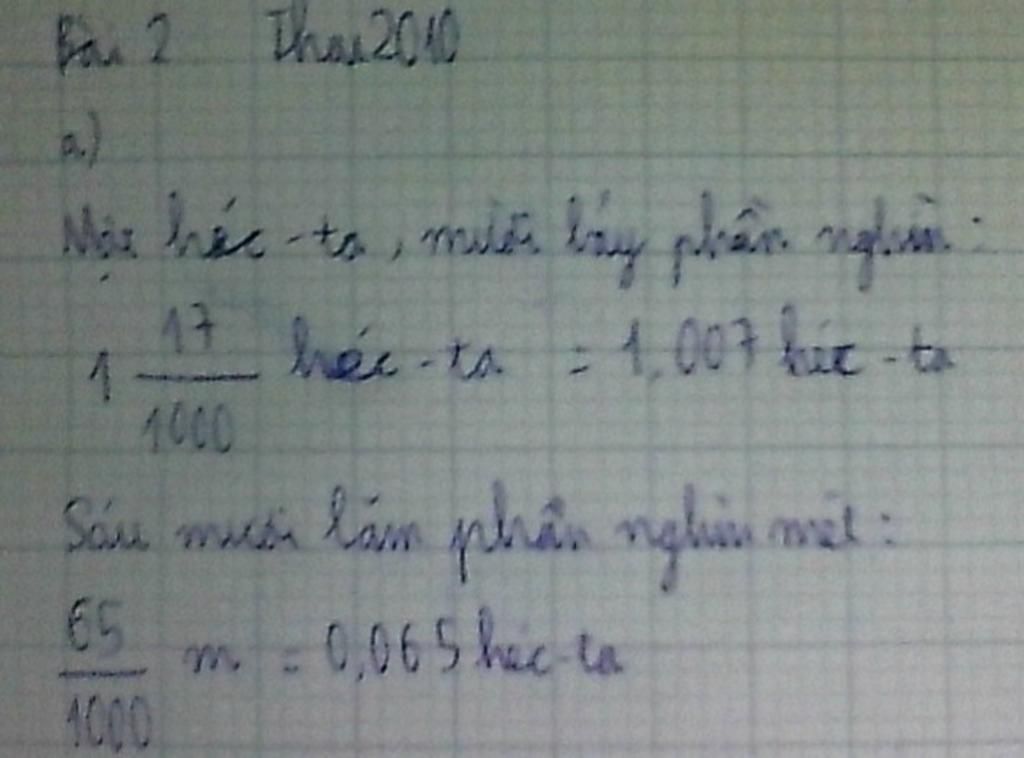 Bài 2 Thai2010
a.)
Một héc-ta, mười bảy phần nghìn:
1 17/1000 héc-ta = 1,007 héc-ta
Sáu mươi lăm phần nghìn mét:
65/1000 m = 0,065 héc-ta